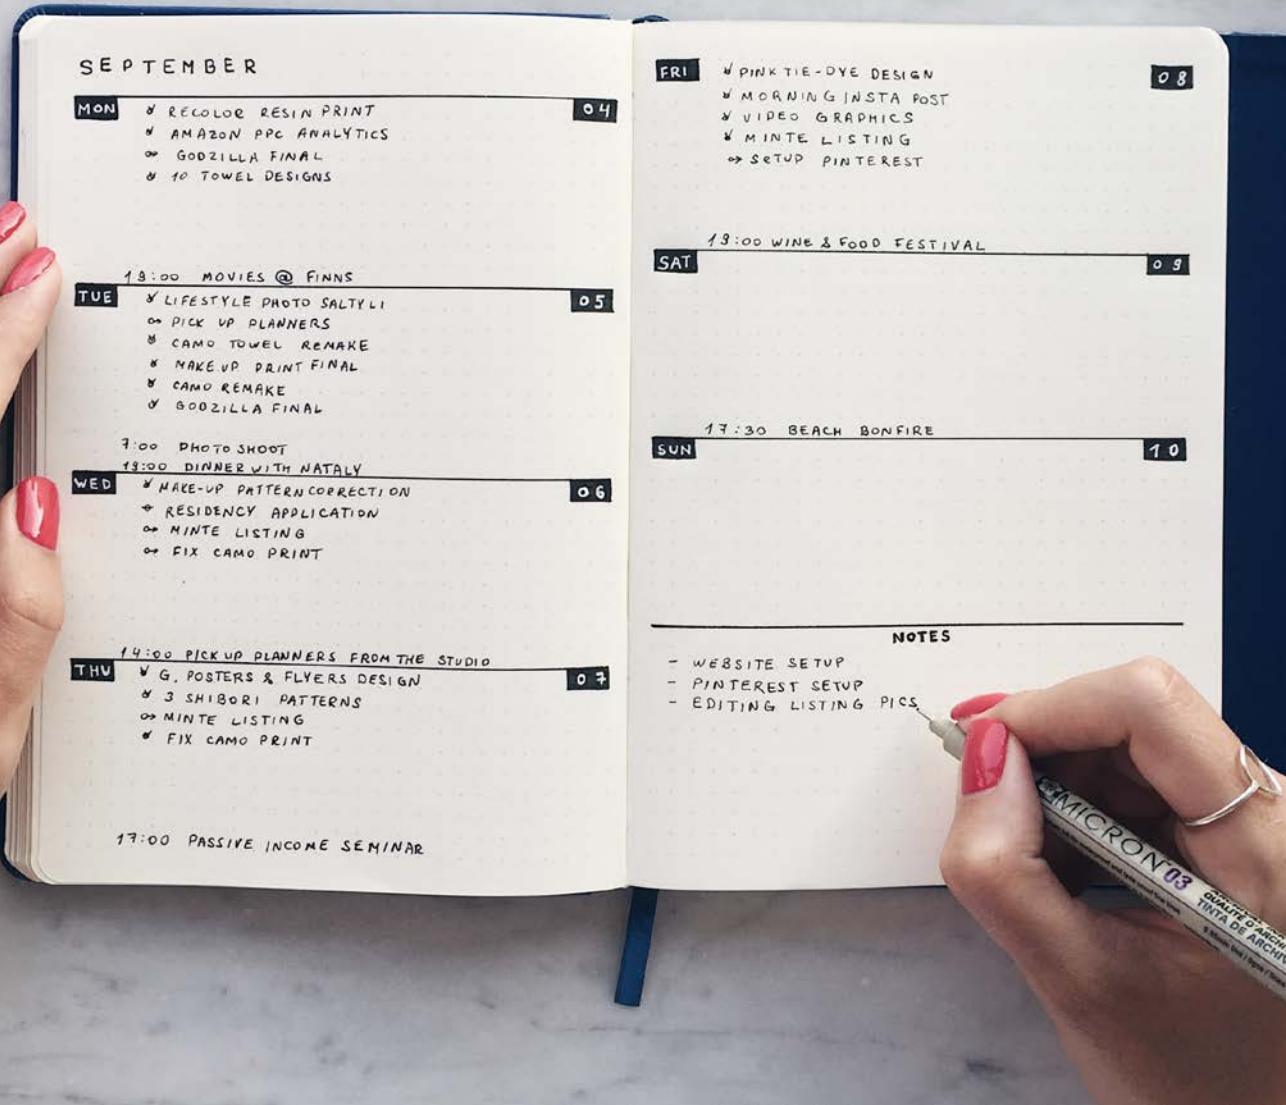 SEPTEMBER
MON 04
RECOLOR RESIN PRINT
AMAZON PPC ANALYTICS
GODZILLA FINAL
10 TOWEL DESIGNS
19:00 MOVIES @ FINNS
TUE 05
LIFESTYLE PHOTO SALTYLI
PICK UP PLANNERS
CAMO TOWEL REMAKE
MAKE UP PRINT FINAL
CAMO REMAKE
GODZILLA FINAL
7:00 PHOTO SHOOT
19:00 DINNER WITH NATALY
WED 06
MAKE-UP PATTERN CORRECTION
RESIDENCY APPLICATION
MINTE LISTING
FIX CAMO PRINT
14:00 PICK UP PLANNERS FROM THE STUDIO
THU 07
G. POSTERS & FLYERS DESIGN
3 SHIBORI PATTERNS
MINTE LISTING
FIX CAMO PRINT
17:00 PASSIVE INCOME SEMINAR
FRI 08
PINK TIE-DYE DESIGN
MORNING INSTA POST
VIDEO GRAPHICS
MINTE LISTING
SETUP PINTEREST
19:00 WINE & FOOD FESTIVAL
SAT 09
17:30 BEACH BONFIRE
SUN 10
NOTES
- WEBSITE SETUP
- PINTEREST SETUP
- EDITING LISTING PICS
MICRON 03
QUALITÉ D'ARCHI
TINTA DE ARCHIV